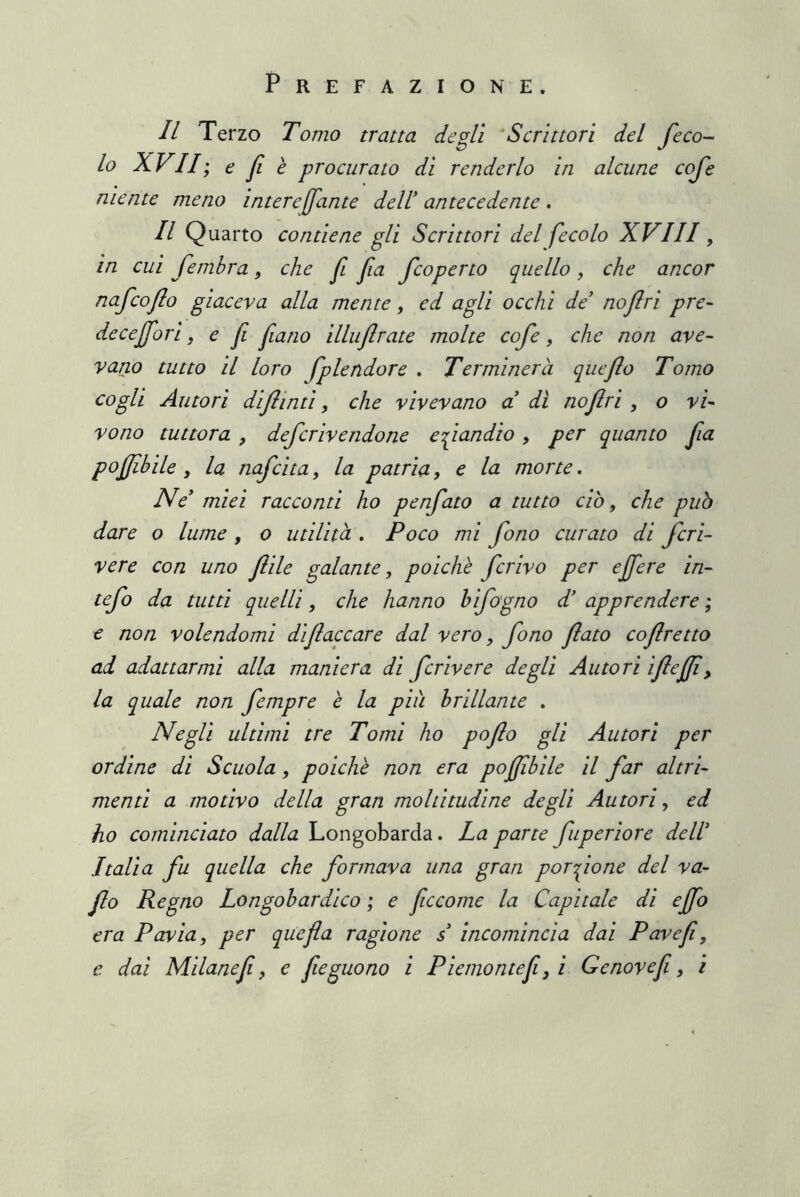 PREFAZIONE.
Il Terzo Tomo tratta degli Scrittori del ſeco-
lo XVII; e ſi è procurato di renderlo in alcune coſe
niente meno intereſſante dell' antecedente.
Il Quarto contiene gli Scrittori del ſecolo XVIII,
in cui ſembra, che ſi ſia ſcoperto quello, che ancor
naſcoſto giaceva alla mente, ed agli occhi de' noſtri pre-
deceſſori, e ſi ſiano illuſtrate molte coſe, che non ave-
vano tutto il loro ſplendore. Terminerà queſto Tomo
cogli Autori diſtinti, che vivevano a' dì noſtri, o vi-
vono tuttora, deſcrivendone eziandio, per quanto ſia
poſſibile, la naſcita, la patria, e la morte.
Ne' miei racconti ho penſato a tutto ciò, che può
dare o lume, o utilità. Poco mi ſono curato di ſcri-
vere con uno ſtile galante, poichè ſcrivo per eſſere in-
teſo da tutti quelli, che hanno biſogno d' apprendere;
e non volendomi diſtaccare dal vero, ſono ſtato coſtretto
ad adattarmi alla maniera di ſcrivere degli Autori iſteſſi,
la quale non ſempre è la più brillante.
Negli ultimi tre Tomi ho poſto gli Autori per
ordine di Scuola, poichè non era poſſibile il far altri-
menti a motivo della gran moltitudine degli Autori, ed
ho cominciato dalla Longobarda. La parte ſuperiore dell'
Italia fu quella che formava una gran porzione del va-
ſto Regno Longobardico; e ſiccome la Capitale di eſſo
era Pavia, per queſta ragione s' incomincia dai Paveſi,
e dai Milaneſi, e ſieguono i Piemonteſi, i Genoveſi, i